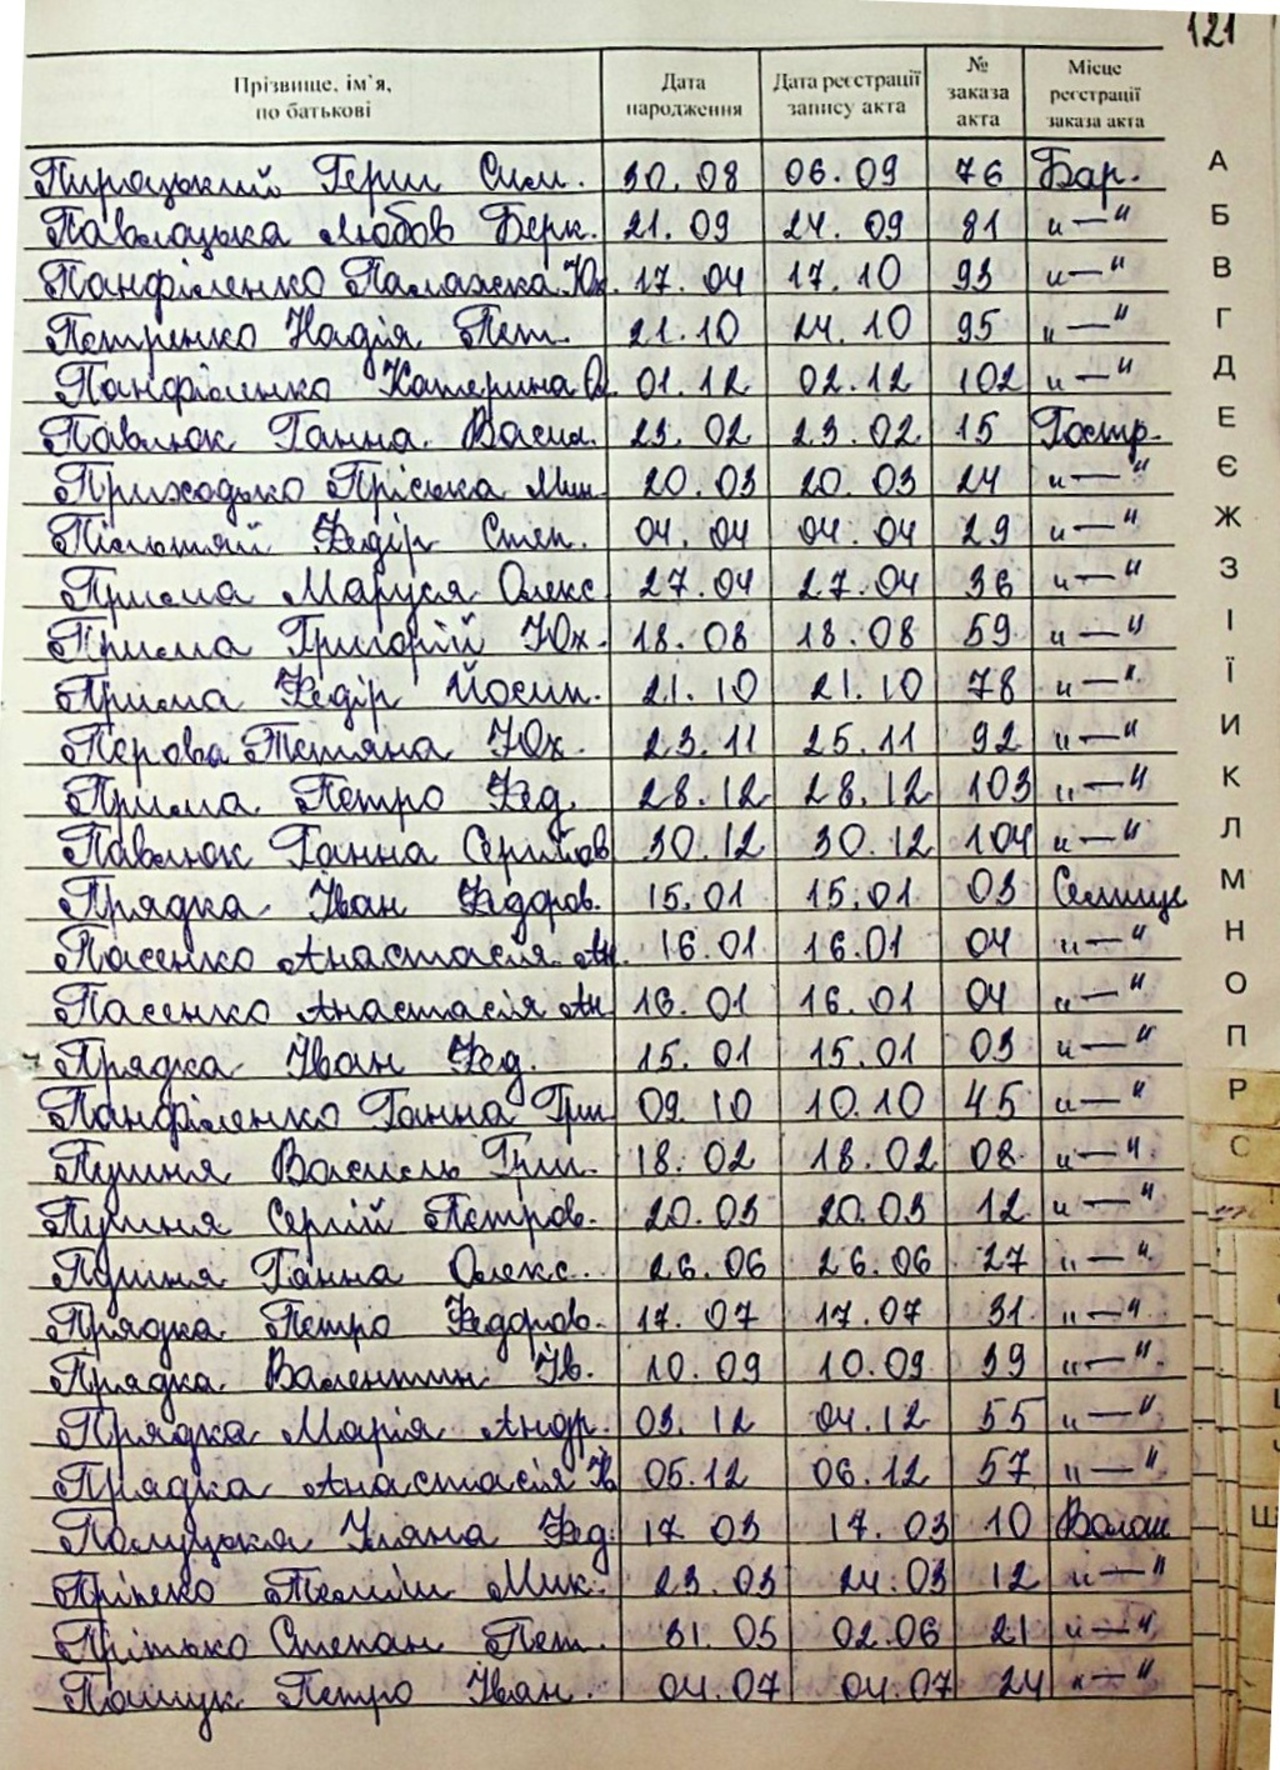 121
Прізвище, ім`я, по батькові Дата народження Дата реєстрації запису акта № заказа акта Місце реєстрації заказа акта
Пироцький Герш Сим. 30.08 06.09 76 Бар. А
Павлоцька Любов Берк. 21.09 24.09 81 "—" Б
Панфіленко Палажка Юх. 17.04 17.10 93 "—" В
Петренко Надія Пет. 21.10 24.10 95 "—" Г
Панфіленко Катерина О. 01.12 02.12 102 "—" Д
Павлюк Ганна Васил. 23.02 23.02 15 Гостр. Е
Приходько Пріська Мин. 20.03 20.03 24 "—" Є
Федір Степ. 04.04 04.04 29 "—" Ж
Прима Маруся Олекс. 27.04 27.04 36 "—" З
Прима Григорій Юх. 18.08 18.08 59 "—" І
Прима Федір Йосип. 21.10 21.10 78 "—" Ї
Перова Тетяна Юх. 23.11 25.11 92 "—" И
Прима Петро Фед. 28.12 28.12 103 "—" К
Павлюк Ганна Сергійов 30.12 30.12 104 "—" Л
Прядка Іван Федоров. 15.01 15.01 03 Селище М
Пасенко Анастасія Ан. 16.01 16.01 04 "—" Н
Пасенко Анастасія Ан. 16.01 16.01 04 "—" О
Прядка Іван Фед. 15.01 15.01 03 "—" П
Панфіленко Ганна Гри 09.10 10.10 45 "—" Р
Пушня Василь Гри. 18.02 18.02 08 "—" С
Пушня Сергій Петров. 20.03 20.03 12 "—"
Пушня Ганна Олекс. 26.06 26.06 27 "—"
Прядка Петро Федоров. 17.07 17.07 31 "—"
Прядка Валентин Ів. 10.09 10.09 39 "—"
Прядка Марія Андр. 03.12 04.12 55 "—"
Прядка Анастасія 05.12 06.12 57 "—"
Уляна Фед. 17 03 17.03 10 Волош Ш
Мик. 23.03 24.03 12 "—"
Прітько Степан Пет. 31.05 02.06 21 "—"
Пащук Петро Іван. 04.07 04.07 24 "—"